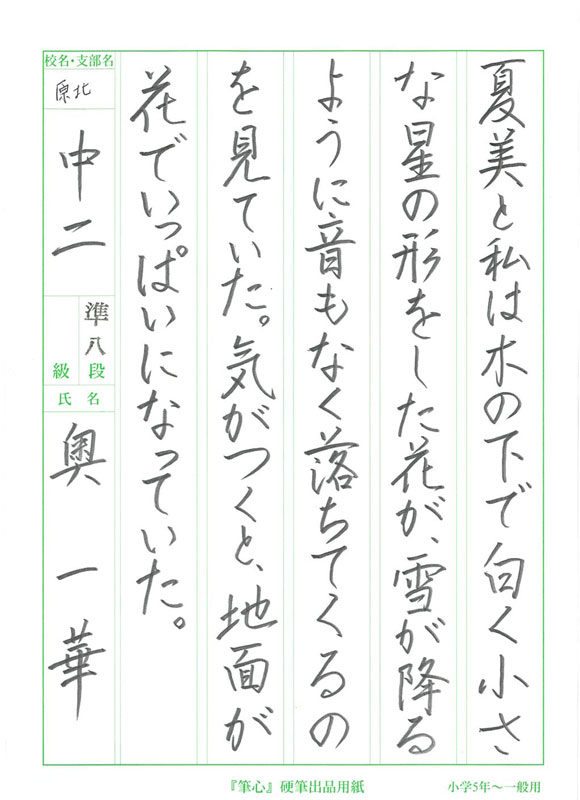 夏美と私は木の下で白く小さ
な星の形をした花が、雪が降る
ように音もなく落ちてくるの
を見ていた。気がつくと、地面が
花でいっぱいになっていた。
校名・支部名
原北
中二
準八段
級
氏名
奥一華
『筆心』硬筆出品用紙
小学5年〜一般用